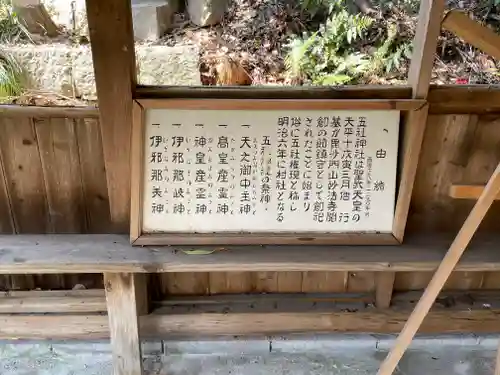 由緒
五社神社は聖武天皇の
天平十戊寅三月僧行
基が毘沙門山妙法寺開
創の節鎮守として創祀
された事に始まり
俗に五社権現と称し
明治六年に村社となる
五社神社の祭神
一天之御中主神
一高皇産霊神
一神皇産霊神
一伊邪那岐神
一伊邪那美神